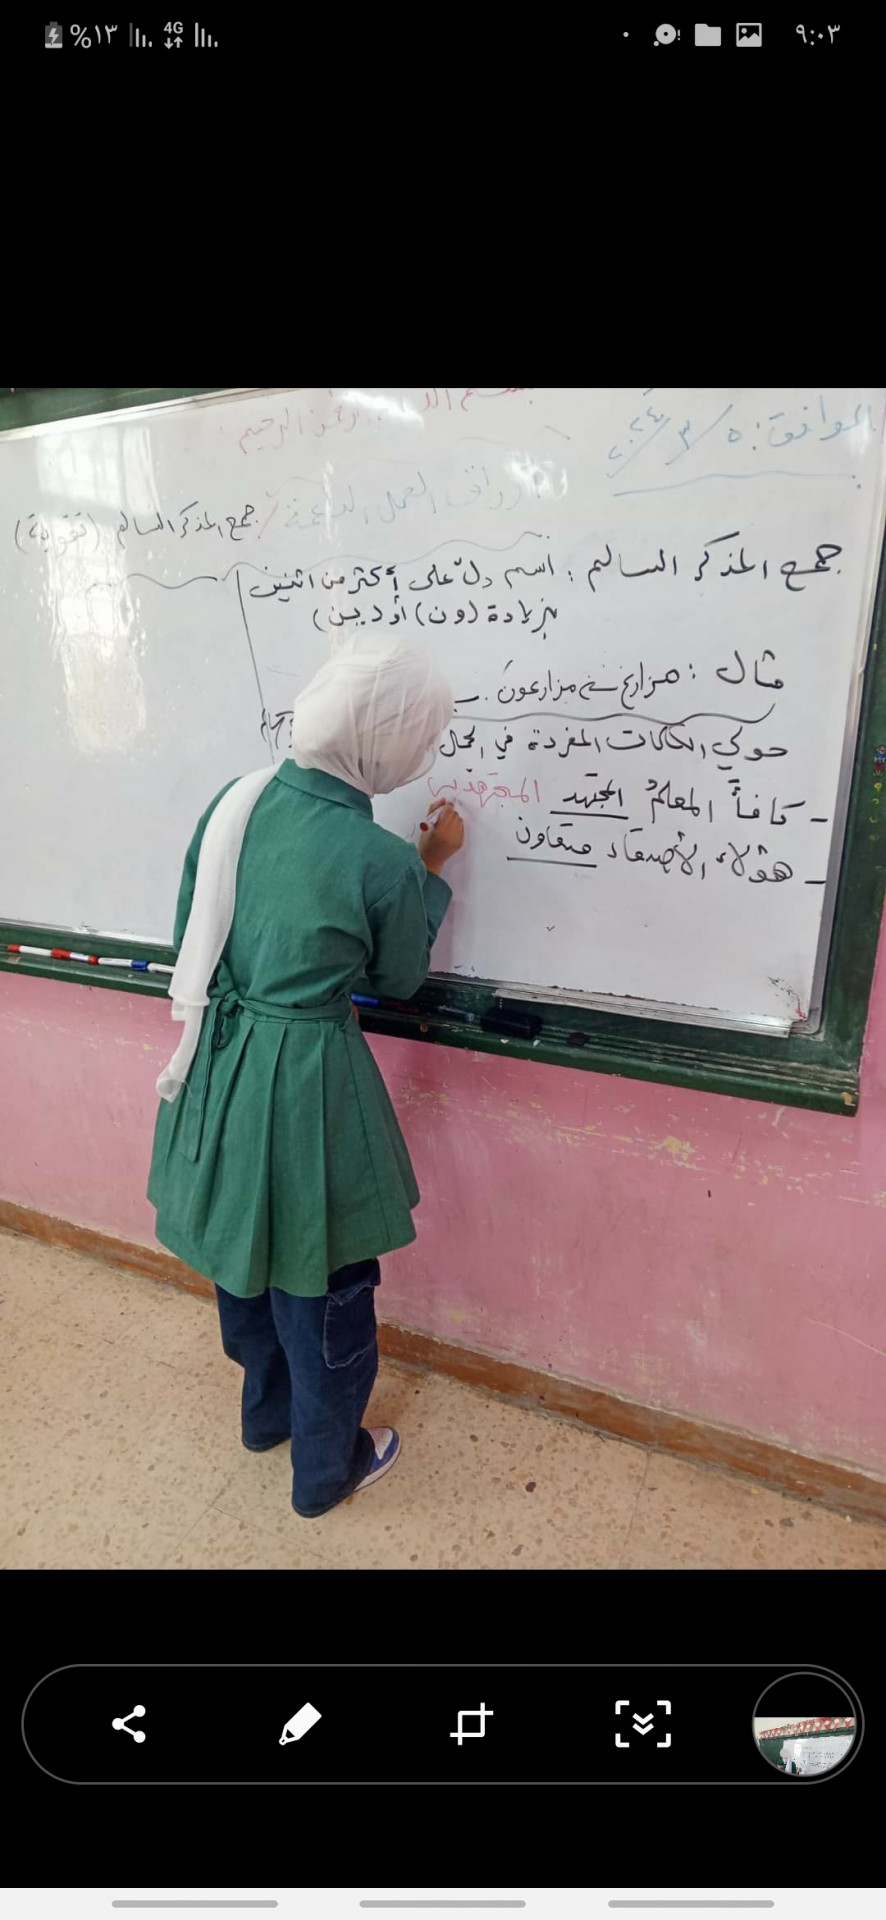 %١٣
4G
٩:٠٣
بسم الله الرحمن الرحيم
الموافق: ٥/٣/٢٠٢٤
أوراق العمل الداعمة / جمع المذكر السالم (تقوية)
جمع المذكر السالم : اسم دلّ على أكثر من اثنين
بزيادة (ون) أو (ين)
مثال : مزارع مزارعون
حولي الكلمات المفردة في الجمل
- كافأ المعلمُ المجتهد المجتهدين
- هؤلاء الأصدقاء متعاون